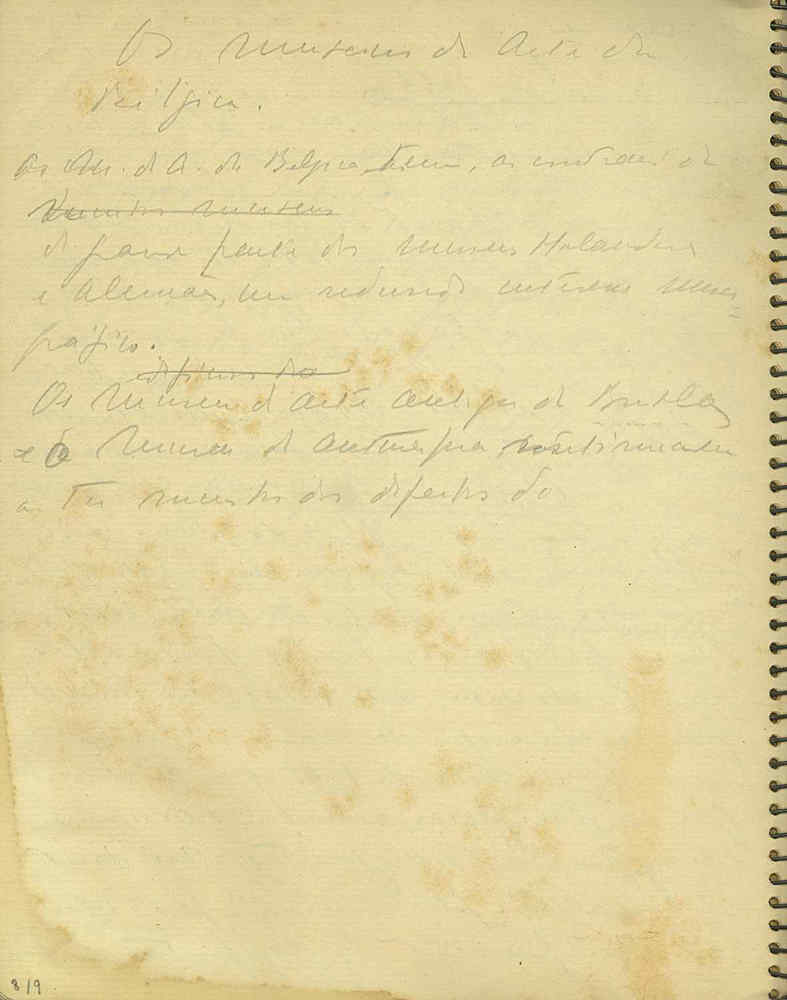 Os museus de Arte da
Bélgica.
Os M. d A. da Belgica teem, ao contrario de
muitos museus
de grande parte dos museus Holandeses
e Alemães, um reduzido interesse museo=
gráfico.
Os Museus d'arte antiga de Bruxelas
e o Museu de Antuerpia,
os defeitos do
8/9